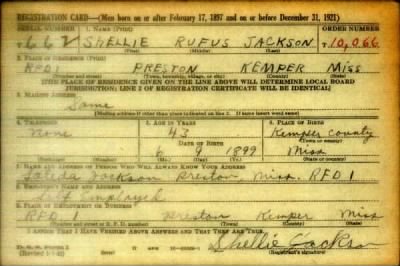 REGISTRATION CARD—(Men born on or after February 17, 1897 and on or before December 31, 1921)
SERIAL NUMBER 1. NAME (Print) ORDER NUMBER
T 662 SHELLIE RUFUS JACKSON T 10,066
(First) (Middle) (Last)
2. PLACE OF RESIDENCE (Print)
RFD1 PRESTON KEMPER MISS
(Number and street) (Town, township, village, or city) (County) (State)
[THE PLACE OF RESIDENCE GIVEN ON THE LINE ABOVE WILL DETERMINE LOCAL BOARD
JURISDICTION; LINE 2 OF REGISTRATION CERTIFICATE WILL BE IDENTICAL]
3. MAILING ADDRESS
Same
[Mailing address if other than place indicated on line 2. If same insert word same]
4. TELEPHONE 5. AGE IN YEARS 6. PLACE OF BIRTH
None 43 Kemper County
DATE OF BIRTH (Town or county)
6 9 1899 Miss
(Mo.) (Day) (Yr.) (State or country)
7. NAME AND ADDRESS OF PERSON WHO WILL ALWAYS KNOW YOUR ADDRESS
Jackson Preston, Miss. RFD 1
8. EMPLOYER'S NAME AND ADDRESS
Self Employed
9. PLACE OF EMPLOYMENT OR BUSINESS
RFD 1 Preston Kemper Miss
(Number and street or R. F. D. number) (Town) (County) (State)
I AFFIRM THAT I HAVE VERIFIED ABOVE ANSWERS AND THAT THEY ARE TRUE.
D. S. S. Form 1
Shellie Jackson
(Registrant's signature)